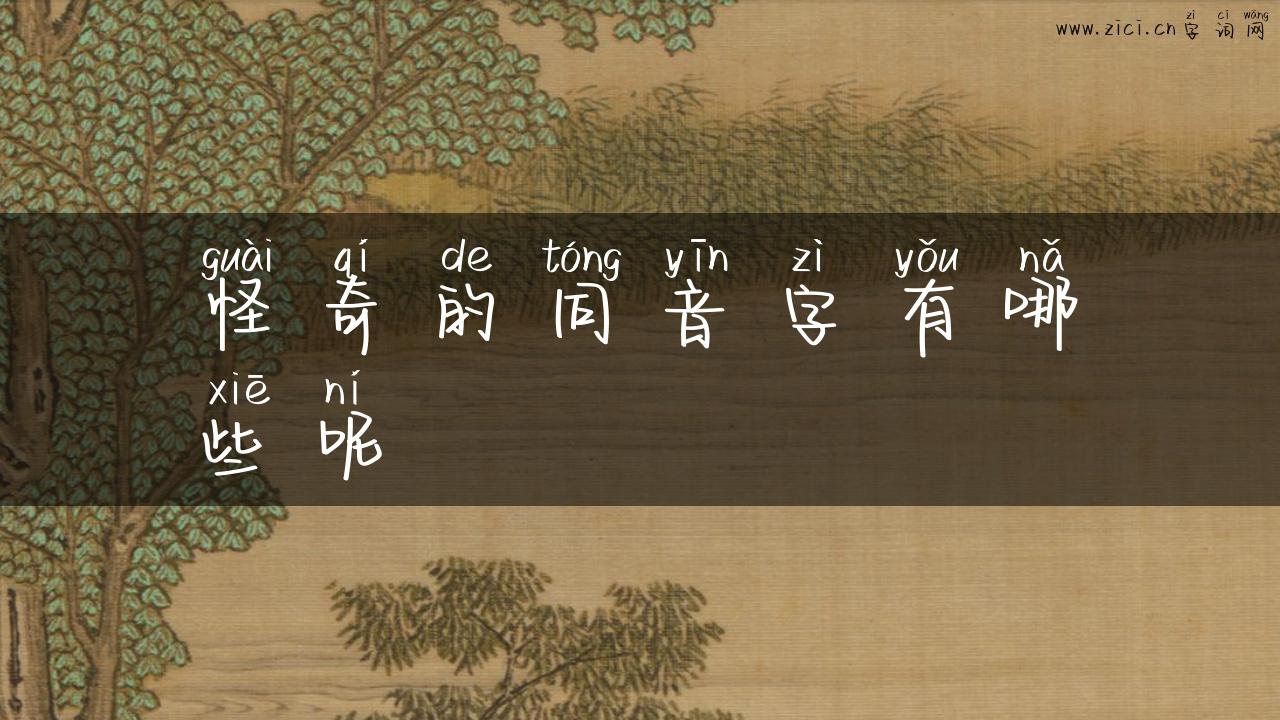 zì cí wǎng
www.zici.cn字词网
guài qí de tóng yīn zì yǒu nǎ
怪奇的同音字有哪
xiē ní
些呢